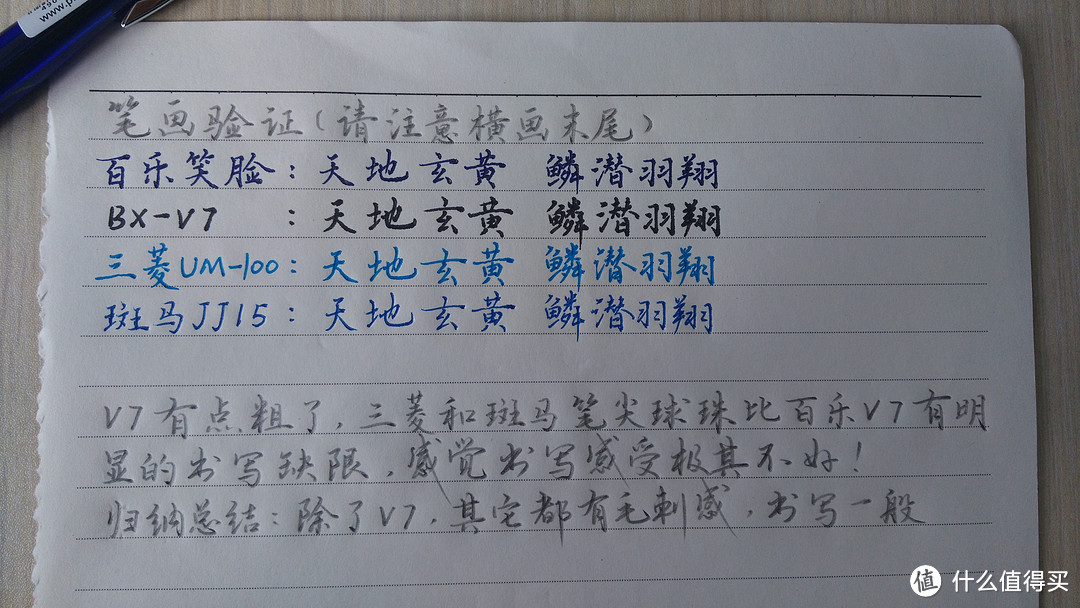 www.p
笔画验证(请注意横画末尾)
百乐笑脸:天地玄黄 鳞潜羽翔
BX-V7 :天地玄黄 鳞潜羽翔
三菱UM-100:天地玄黄 鳞潜羽翔
斑马JJ15:天地玄黄 鳞潜羽翔
V7有点粗了,三菱和斑马笔尖球珠比百乐V7有明
显的书写缺限,感觉书写感受极其不好!
归纳总结:除了V7,其它都有毛刺感,书写一般
值 什么值得买